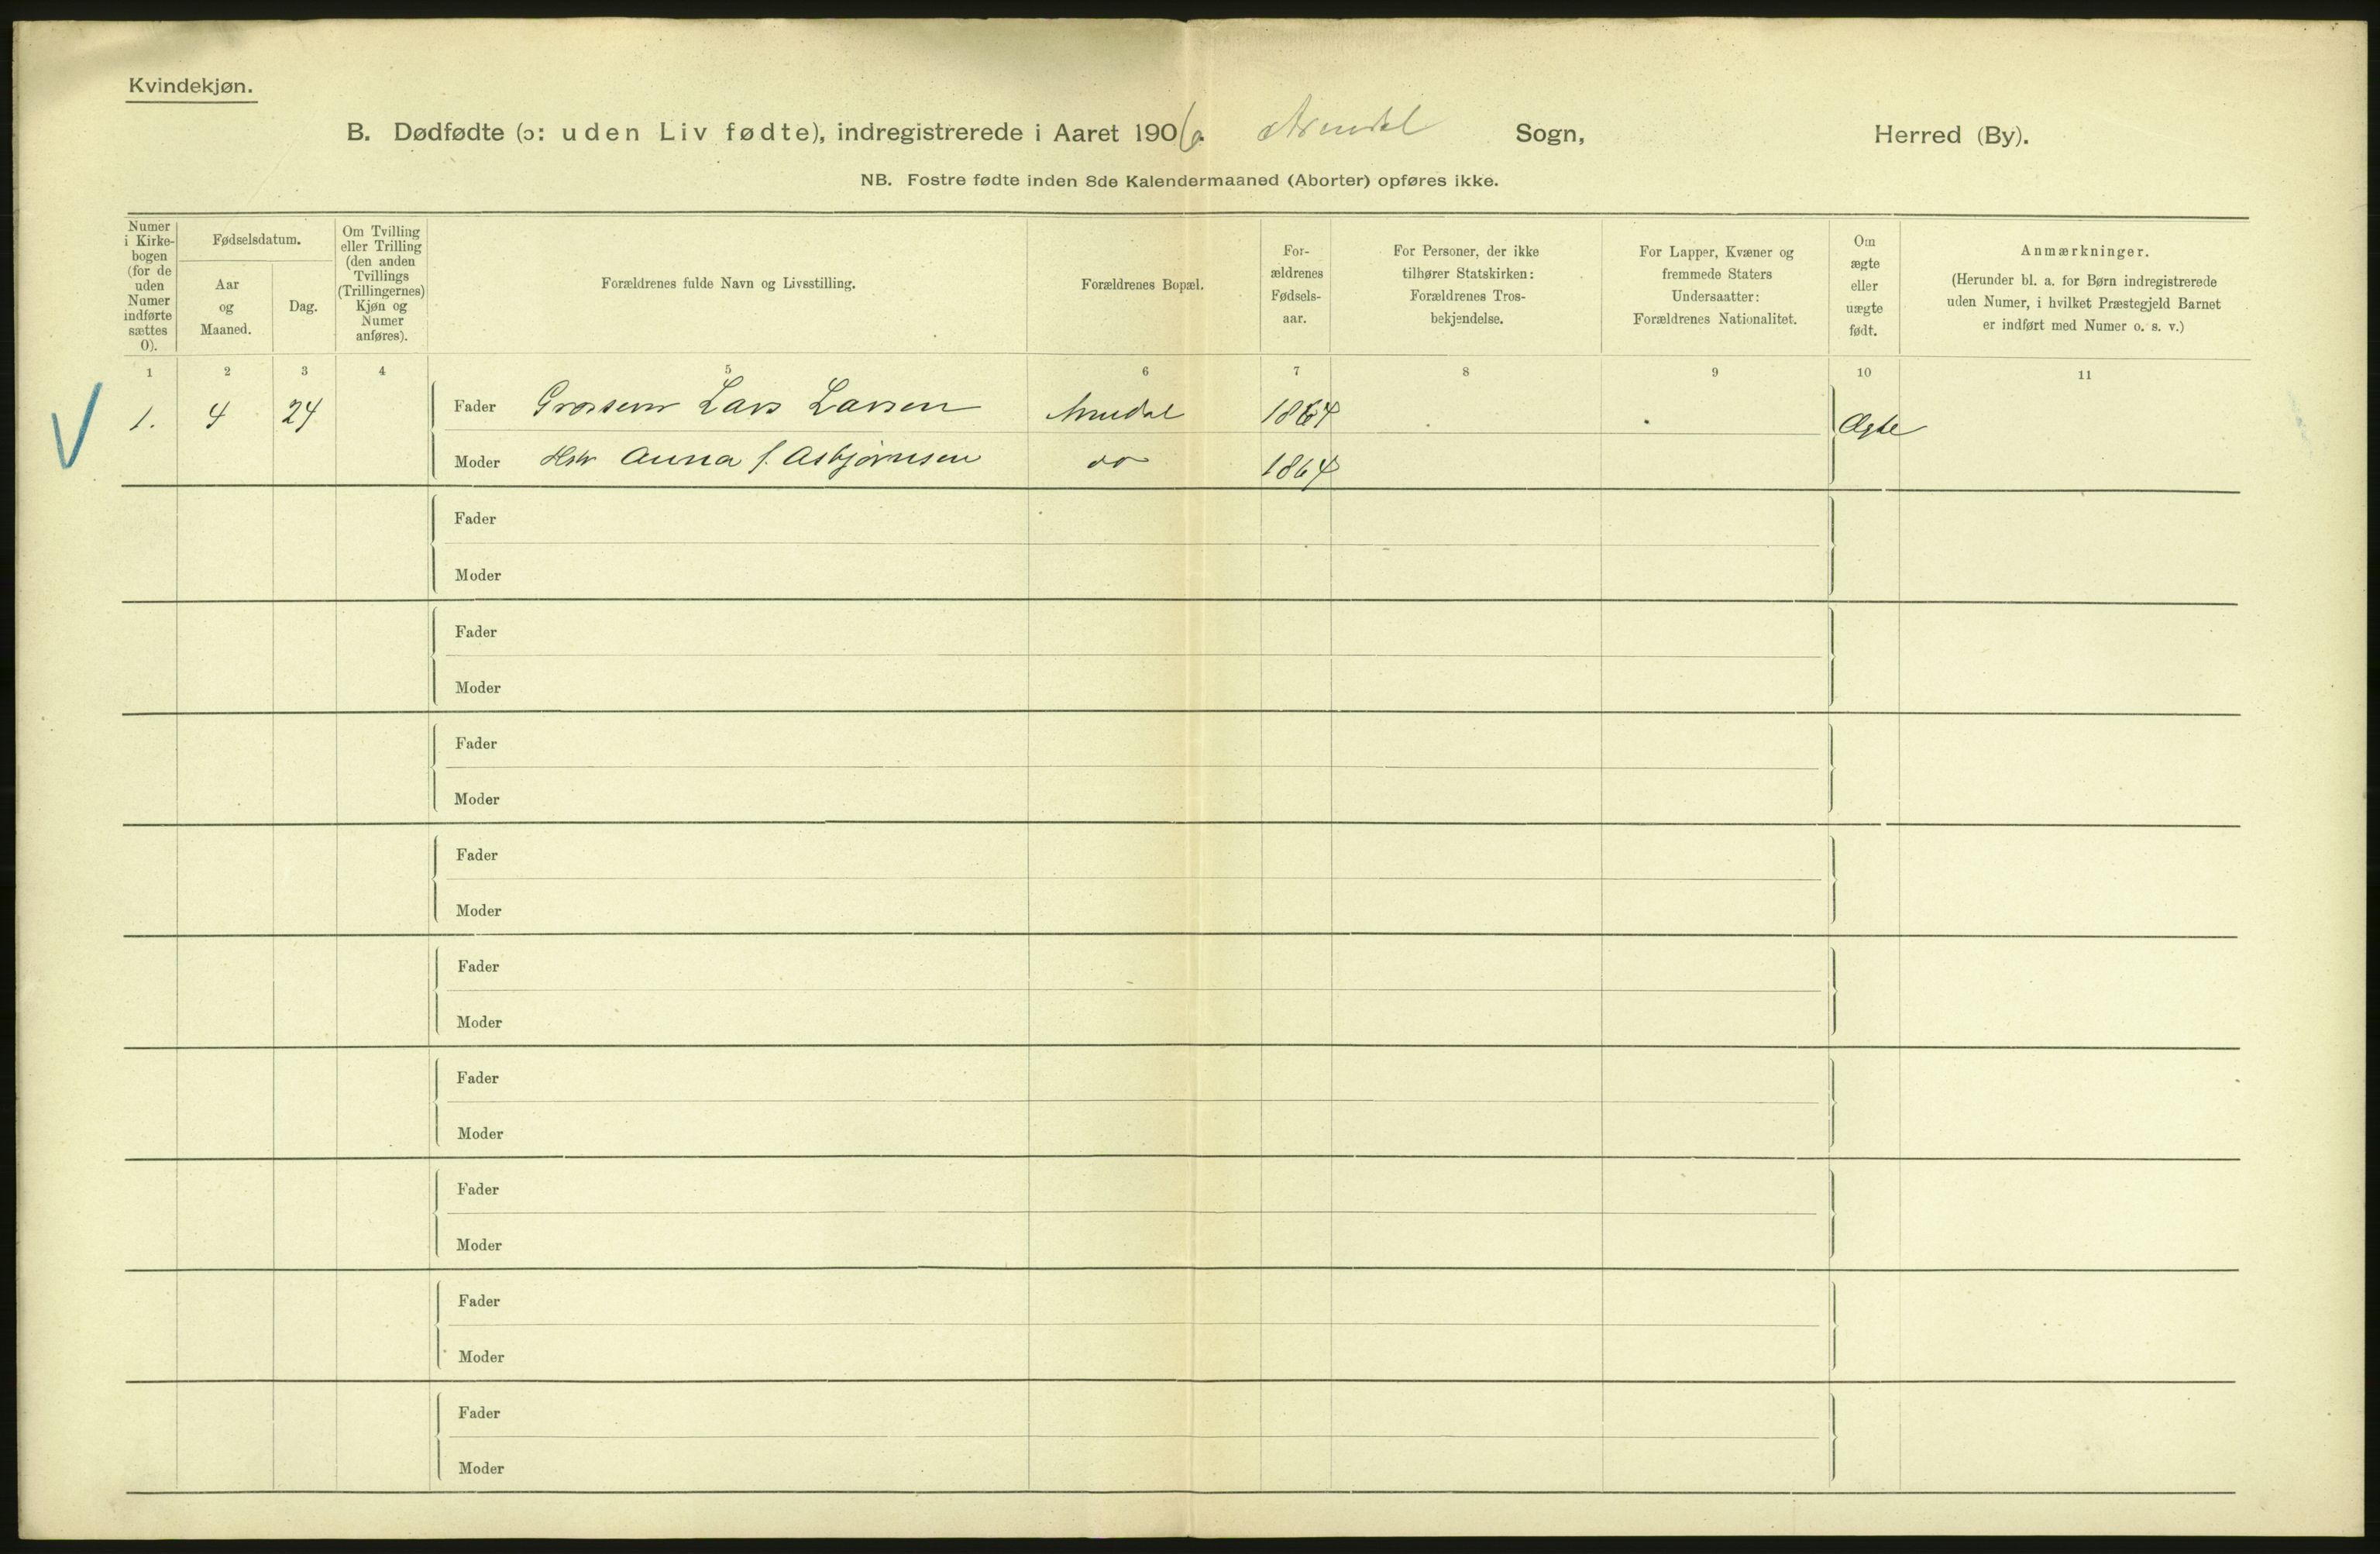 Kvindekjøn.
B. Dødfødte (ɔ: uden Liv fødte), indregistrerede i Aaret 1906. Arendal Sogn, Herred (By).
NB. Fostre fødte inden 8de Kalendermaaned (Aborter) opføres ikke.
Numer
i Kirke-
bogen
(for de
uden
Numer
indførte
sættes
0).
Fødselsdatum.
Aar
og
Maaned.
Dag.
Om Tvilling
eller Trilling
(den anden
Tvillings
(Trillingernes)
Kjøn og
Numer
anføres).
Forældrenes fulde Navn og Livsstilling.
Forældrenes Bopæl.
For-
ældrenes
Fødsels-
aar.
For Personer, der ikke
tilhører Statskirken:
Forældrenes Tros-
bekjendelse.
For Lapper, Kvæner og
fremmede Staters
Undersaatter:
Forældrenes Nationalitet.
Om
ægte
eller
uægte
født.
Anmærkninger.
(Herunder bl. a. for Børn indregistrerede
uden Numer, i hvilket Præstegjeld Barnet
er indført med Numer o. s. v.)
1 2 3 4 5 6 7 8 9 10 11
1. 4 24 Fader Grosserer Lars Larsen Arendal 1864 Ægte
Moder Hstr Anna f. Asbjørnsen do 1864
Fader
Moder
Fader
Moder
Fader
Moder
Fader
Moder
Fader
Moder
Fader
Moder
Fader
Moder
Fader
Moder
Fader
Moder